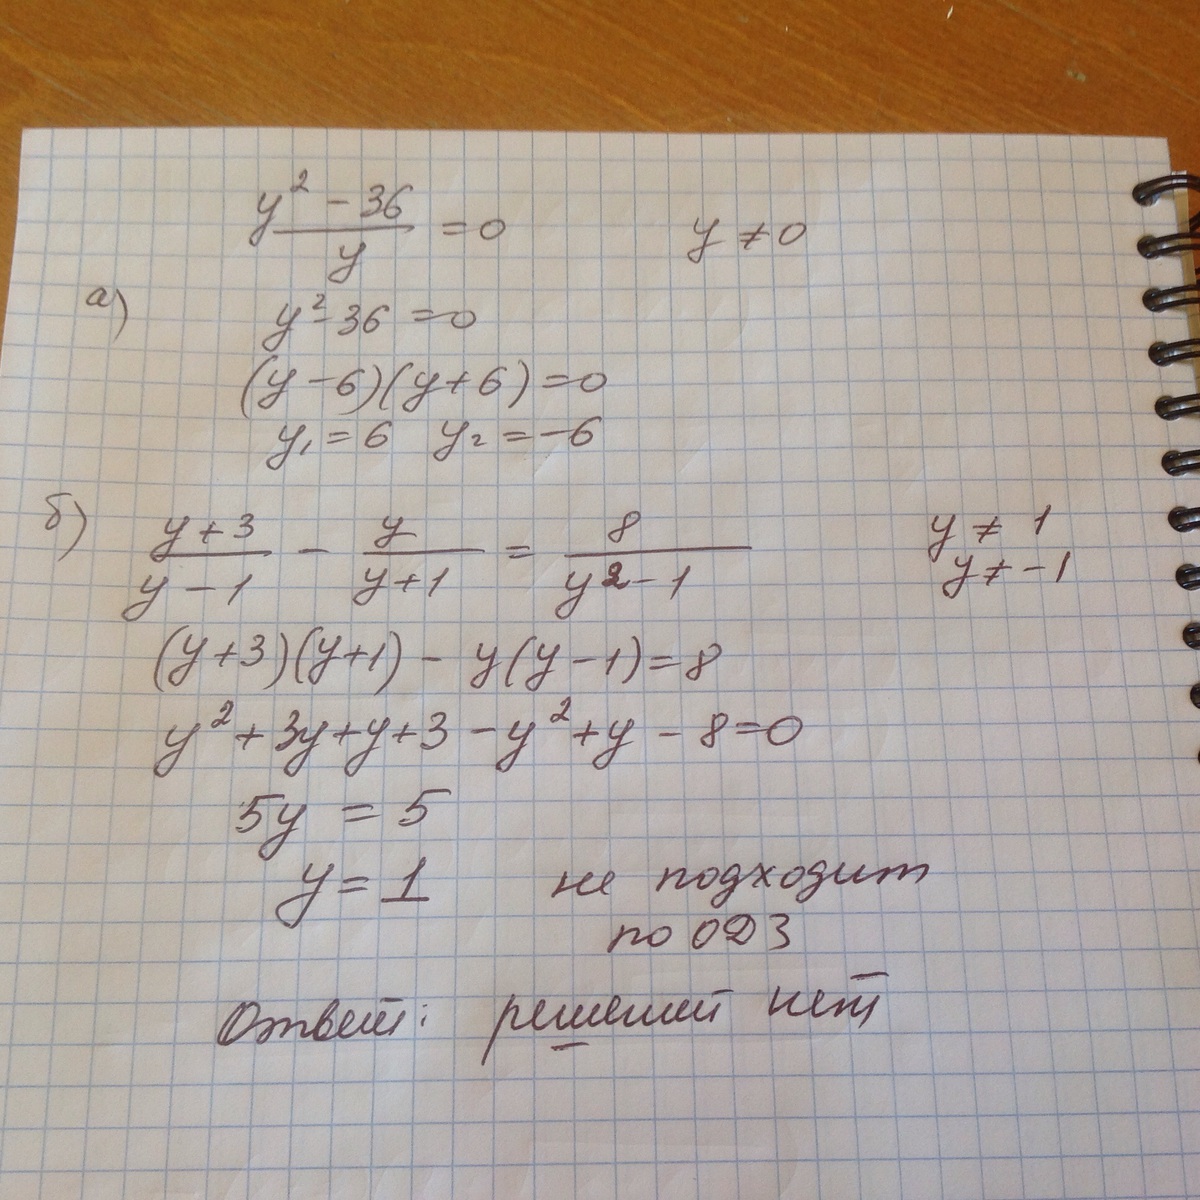 (y² - 36)/y = 0 y ≠ 0
а)
y² - 36 = 0
(y - 6)(y + 6) = 0
y₁ = 6 y₂ = -6
б)
(y + 3)/(y - 1) - y/(y + 1) = 8/(y² - 1) y ≠ 1
y ≠ -1
(y + 3)(y + 1) - y(y - 1) = 8
y² + 3y + y + 3 - y² + y - 8 = 0
5y = 5
y = 1 не подходит
по ОДЗ
Ответ: решений нет